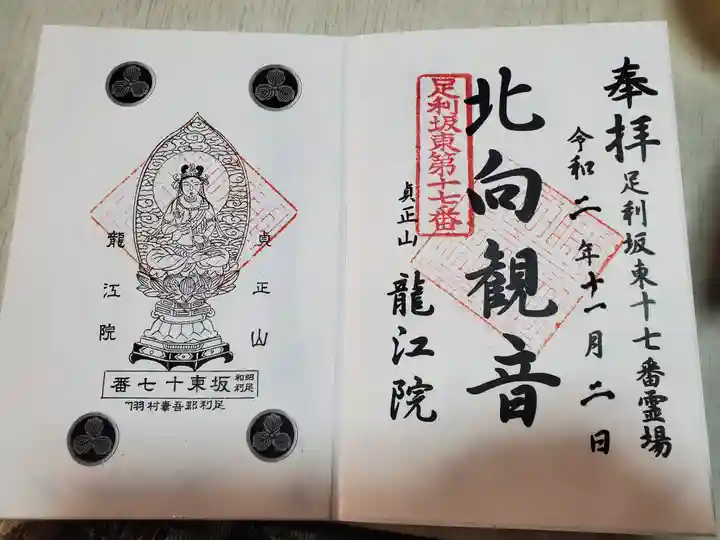 奉拝
足利坂東十七番霊場
令和二年十一月二日
北向観音
足利坂東第十七番
貞正山
龍江院
貞正山
龍江院
昭和足利坂東十七番
足利郡吾妻村羽